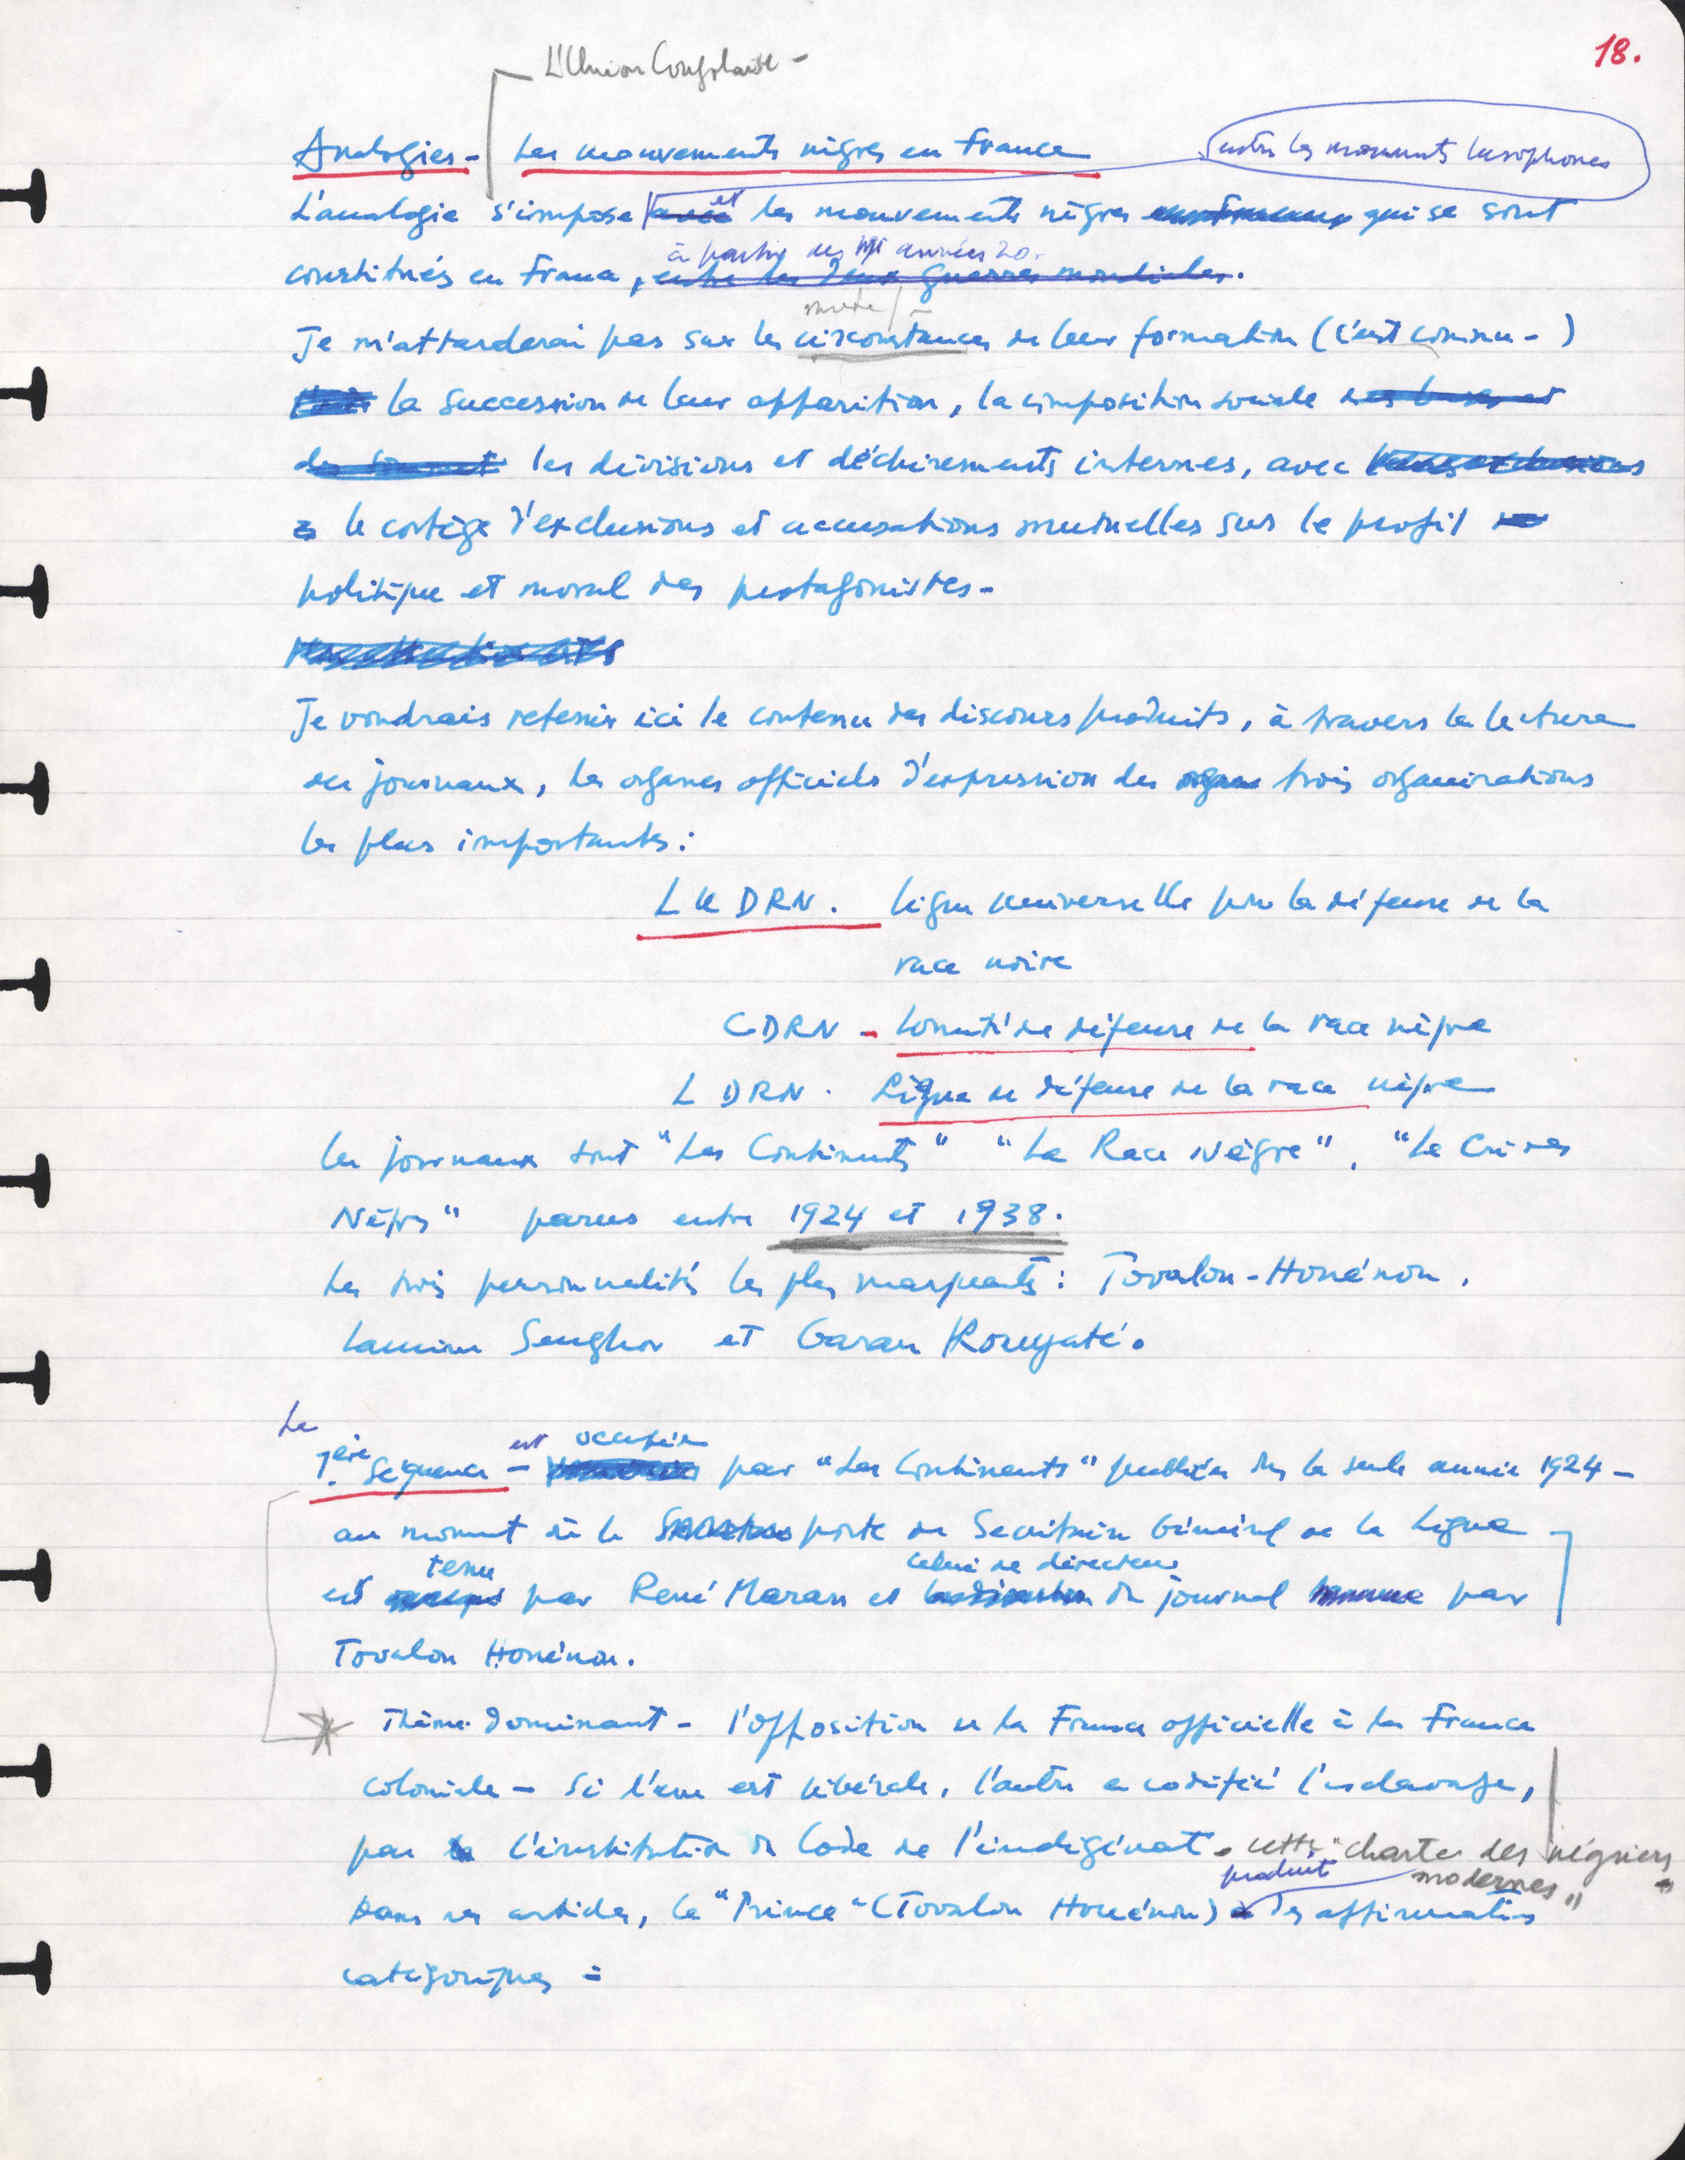 18.
L'Union Congolaise -
Analogies - Les mouvements nègres en France
entre les mouvements lusophones
L'analogie s'impose et les mouvements nègres qui se sont
à partir des années 20.
constitués en France, entre les deux guerres mondiales.
Je m'attarderai pas sur les circonstances de leur formation (c'est connu - )
la succession de leur apparition, la composition sociale
les divisions et déchirements internes, avec
le cortège d'exclusions et accusations mutuelles sur le profil
politique et moral des protagonistes -
Je voudrais retenir ici le contenu des discours produits, à travers la lecture
des journaux, les organes officiels d'expression des trois organisations
les plus importantes :
LUDRN. Ligue universelle pour la défense de la
race noire
CDRN - Comité de défense de la race nègre
LDRN. Ligue de défense de la race nègre
Les journaux sont "Les Continents" "La Race Nègre", "Le Cri des
Nègres" parus entre 1924 et 1938.
Les trois personnalités les plus marquants : Tovalou-Houénou,
Lamine Senghor et Garan Kouyaté.
La
est occupée
1ère Séquence - par "Les Continents" publiés dès la seule année 1924 -
au moment où le poste de Secrétaire Général de la Ligue
tenu celui de directeur
est par René Maran et du journal par
Tovalou Houénou.
Thème dominant - l'opposition de la France officielle à la France
coloniale - Si l'une est libérale, l'autre a codifié l'esclavage,
par l'institution du Code de l'indigénat. cette "charte des négriers
produit modernes"
Dans ses articles, le "Prince" (Tovalou Houénou) des affirmations
catégoriques :